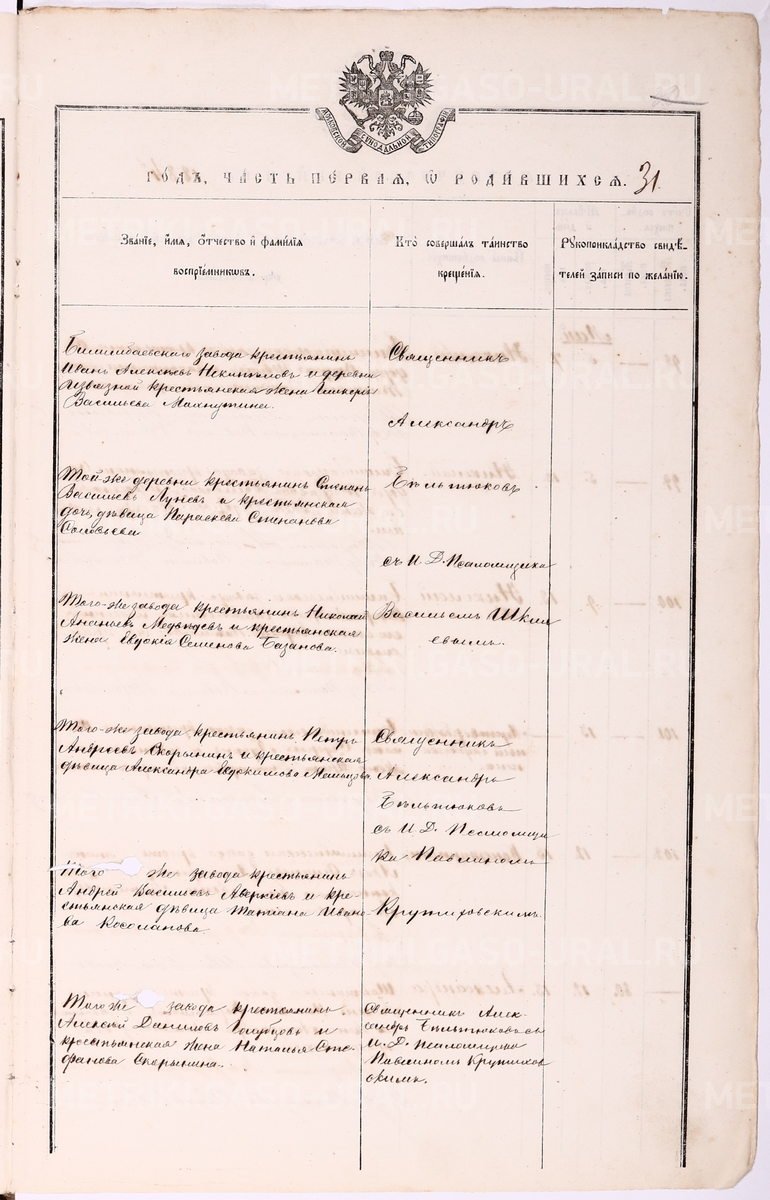 МОСКОВСКОЙ СѴНОДАЛЬНОЙ ТИПОГРАФІИ
го́дъ, ча́сть пе́рваѧ, ѡ҆ роди́вшихсѧ. 31.
Зва́нїе, и҆́мѧ, ѻ҆́тчество и҆ фами́лїѧ
воспрїе́мникѡвъ.
Кто̀ соверша́лъ та́инство
креще́нїѧ.
Рꙋкоприкла́дство свидѣ́-
телей за́писи по жела́нїю.
Билимбаевскаго завода крестьянинъ
Иванъ Алексѣевъ и деревни
Извѣзной крестьянская жена Гликерія
Васильева Махнутина.
Священникъ
Александръ
Той-же деревни крестьянинъ Степанъ
Васильевъ Луневъ и крестьянская
дочь дѣвица Параскева Степанова
Соловьева
Бѣльтюковъ
съ И. Д. Псаломщика
Того-же завода крестьянинъ Николай
Ананьевъ Медвѣдевъ и крестьянская
жена Евдокія Семенова Базанова.
Васильемъ
евымъ.
Того-же завода крестьянинъ Петръ
Андреевъ Скорынинъ и крестьянская
дѣвица Александра Евдокимова
Священникъ
Александръ
Бѣльтюковъ
съ И. Д. Псаломщи
ка Павлиномъ
Крутиховскимъ.
Того же завода крестьянинъ
Андрей Васильевъ Аверкіевъ и кре-
стьянская дѣвица Татіана Ивано-
ва Косолапова
Того же завода крестьянинъ
Алексѣй Даниловъ Голубцовъ и
крестьянская жена Наталья Сте-
фанова Скорынина.
Священникъ Алек-
сандръ Бѣльтюковъ съ
И. Д. Псаломщика
Павлиномъ Крутихов
скимъ.